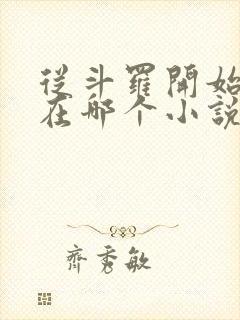 從斗羅開始
在哪个小說
齊秀敏